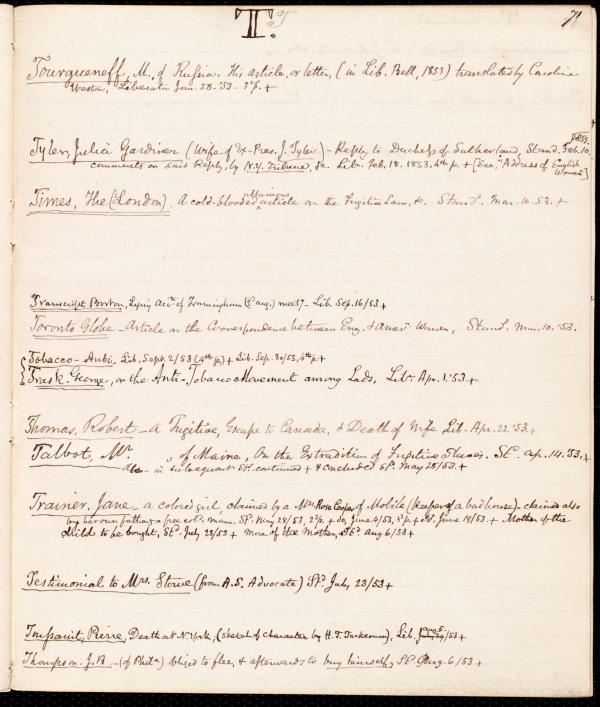 T.
71
Tourgueneff, M. of Russia. His article, or letter, (in Lib. Bell, 1853) translated by Caroline
Weston, Liberator Jan. 28. '53 - 3d p. +
1853
Tyler, Julia Gardiner (Wife of Ex-Pres. J. Tyler) - Reply to Duchess of Sutherland, Stand. Feb. 10.
comments on said Reply, by N.Y. Tribune, &c. Libr. Feb. 18. 1853, 4th p. + [See, "Address of English
Women"]
Times, The (London), A cold-blooded article on the Fugitive Law, &c. Standd. Mar. 10. 53. +
Transcript Boston, Lying acct. of Framingham (1 Aug.) meetg - Lib. Sep. 16/53 +
Toronto Globe - Article on the Correspondence between Eng. & Amern. Women, Standd. Mar. 10. '53.
Tobacco - Anti - Lib. Sept. 2/53 (4th p.) + Lib. Sep. 30/53, 4th p. +
Trask. George, on the Anti-Tobacco Movement among Lads, Libr. Apr. 1. '53 +
Thomas, Robert - A Fugitive, Escape to Canada, & Death of Wife Lib. Apr. 22. '53. +
Talbot, Mr. , of Maine, On the Extradition of Fugitive Slaves. Sd. Ap. 14. '53. +
Also - in subsequent Sd. continued + & concluded Sd. May 26/53. +
Trainer, Jane - a colored girl, claimed by a Mrs. Rose Cooper of Mobile (Keeper of a bad house) - claimed also
by her own father, a free cold. man. Sd. May 28/53, 2d p. + do, June 4/53, 3d p. + Sd. June 18/53 + Mother of the
child to be bought, Sd. July 23/53 + More of the Mother, Sd. Aug 6/53 +
Testimonial to Mrs. Stowe (from A.S. Advocate) Sd. July 23/53 +
Toussaint, Pierre, Death at N. York, (sketch of character by H. T. Tuckerman), Lib. Aug 5. /53 +
Thompson. J. B. - (of Phila) obliged to flee, & afterwards to buy himself, Sd Aug. 6/53 +